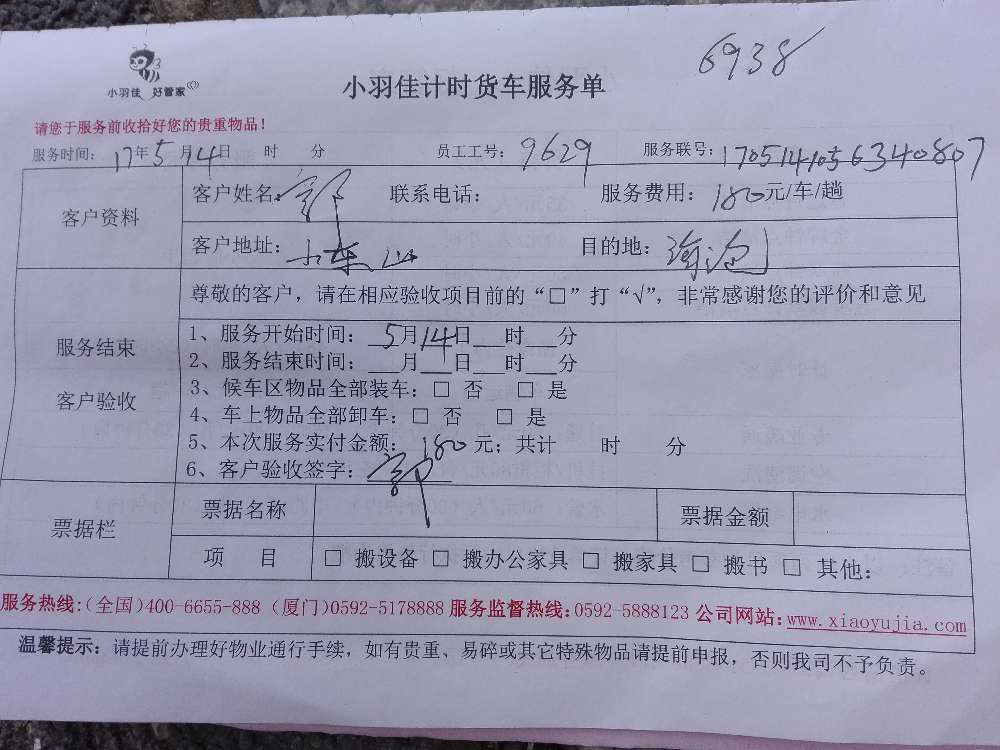 6938
小羽佳 好管家
小羽佳计时货车服务单
请您于服务前收拾好您的贵重物品！
服务时间： 17年5月14日 时 分 员工工号：9629 服务联号：1705141056340807
客户资料
客户姓名： 联系电话： 服务费用：180元/车/趟
客户地址：小东山 目的地：海沧
服务结束
客户验收
尊敬的客户，请在相应验收项目前的“□”打“√”，非常感谢您的评价和意见
1、服务开始时间：5月14日___时___分
2、服务结束时间：___月___日___时___分
3、候车区物品全部装车：□ 否 □ 是
4、车上物品全部卸车：□ 否 □ 是
5、本次服务实付金额：180元；共计 时 分
6、客户验收签字：
票据栏
票据名称 票据金额
项 目 □ 搬设备 □ 搬办公家具 □ 搬家具 □ 搬书 □ 其他：
服务热线：（全国）400-6655-888（厦门）0592-5178888 服务监督热线：0592-5888123 公司网站：www.xiaoyujia.com
温馨提示：请提前办理好物业通行手续，如有贵重、易碎或其它特殊物品请提前申报，否则我司不予负责。